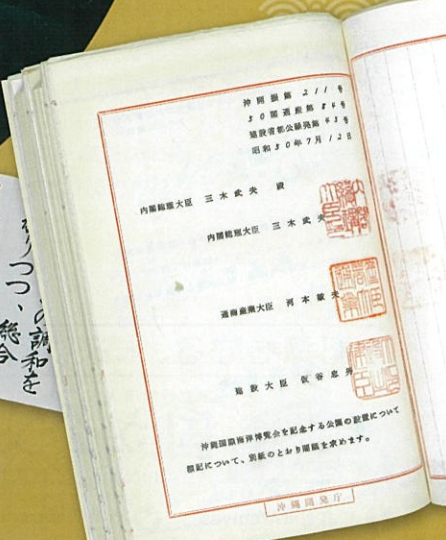 沖開振第211号
50閣通産第84号
建設省都公緑発第43号
昭和50年7月12日
内閣総理大臣 三木武夫 殿
内閣総理大臣 三木武夫
通商産業大臣 河本敏夫
建設大臣 仮谷忠男
沖縄国際海洋博覧会を記念する公園の設置について
標記について、別紙のとおり閣議を求めます。
沖縄開発庁
の調和を
りつつ、総合